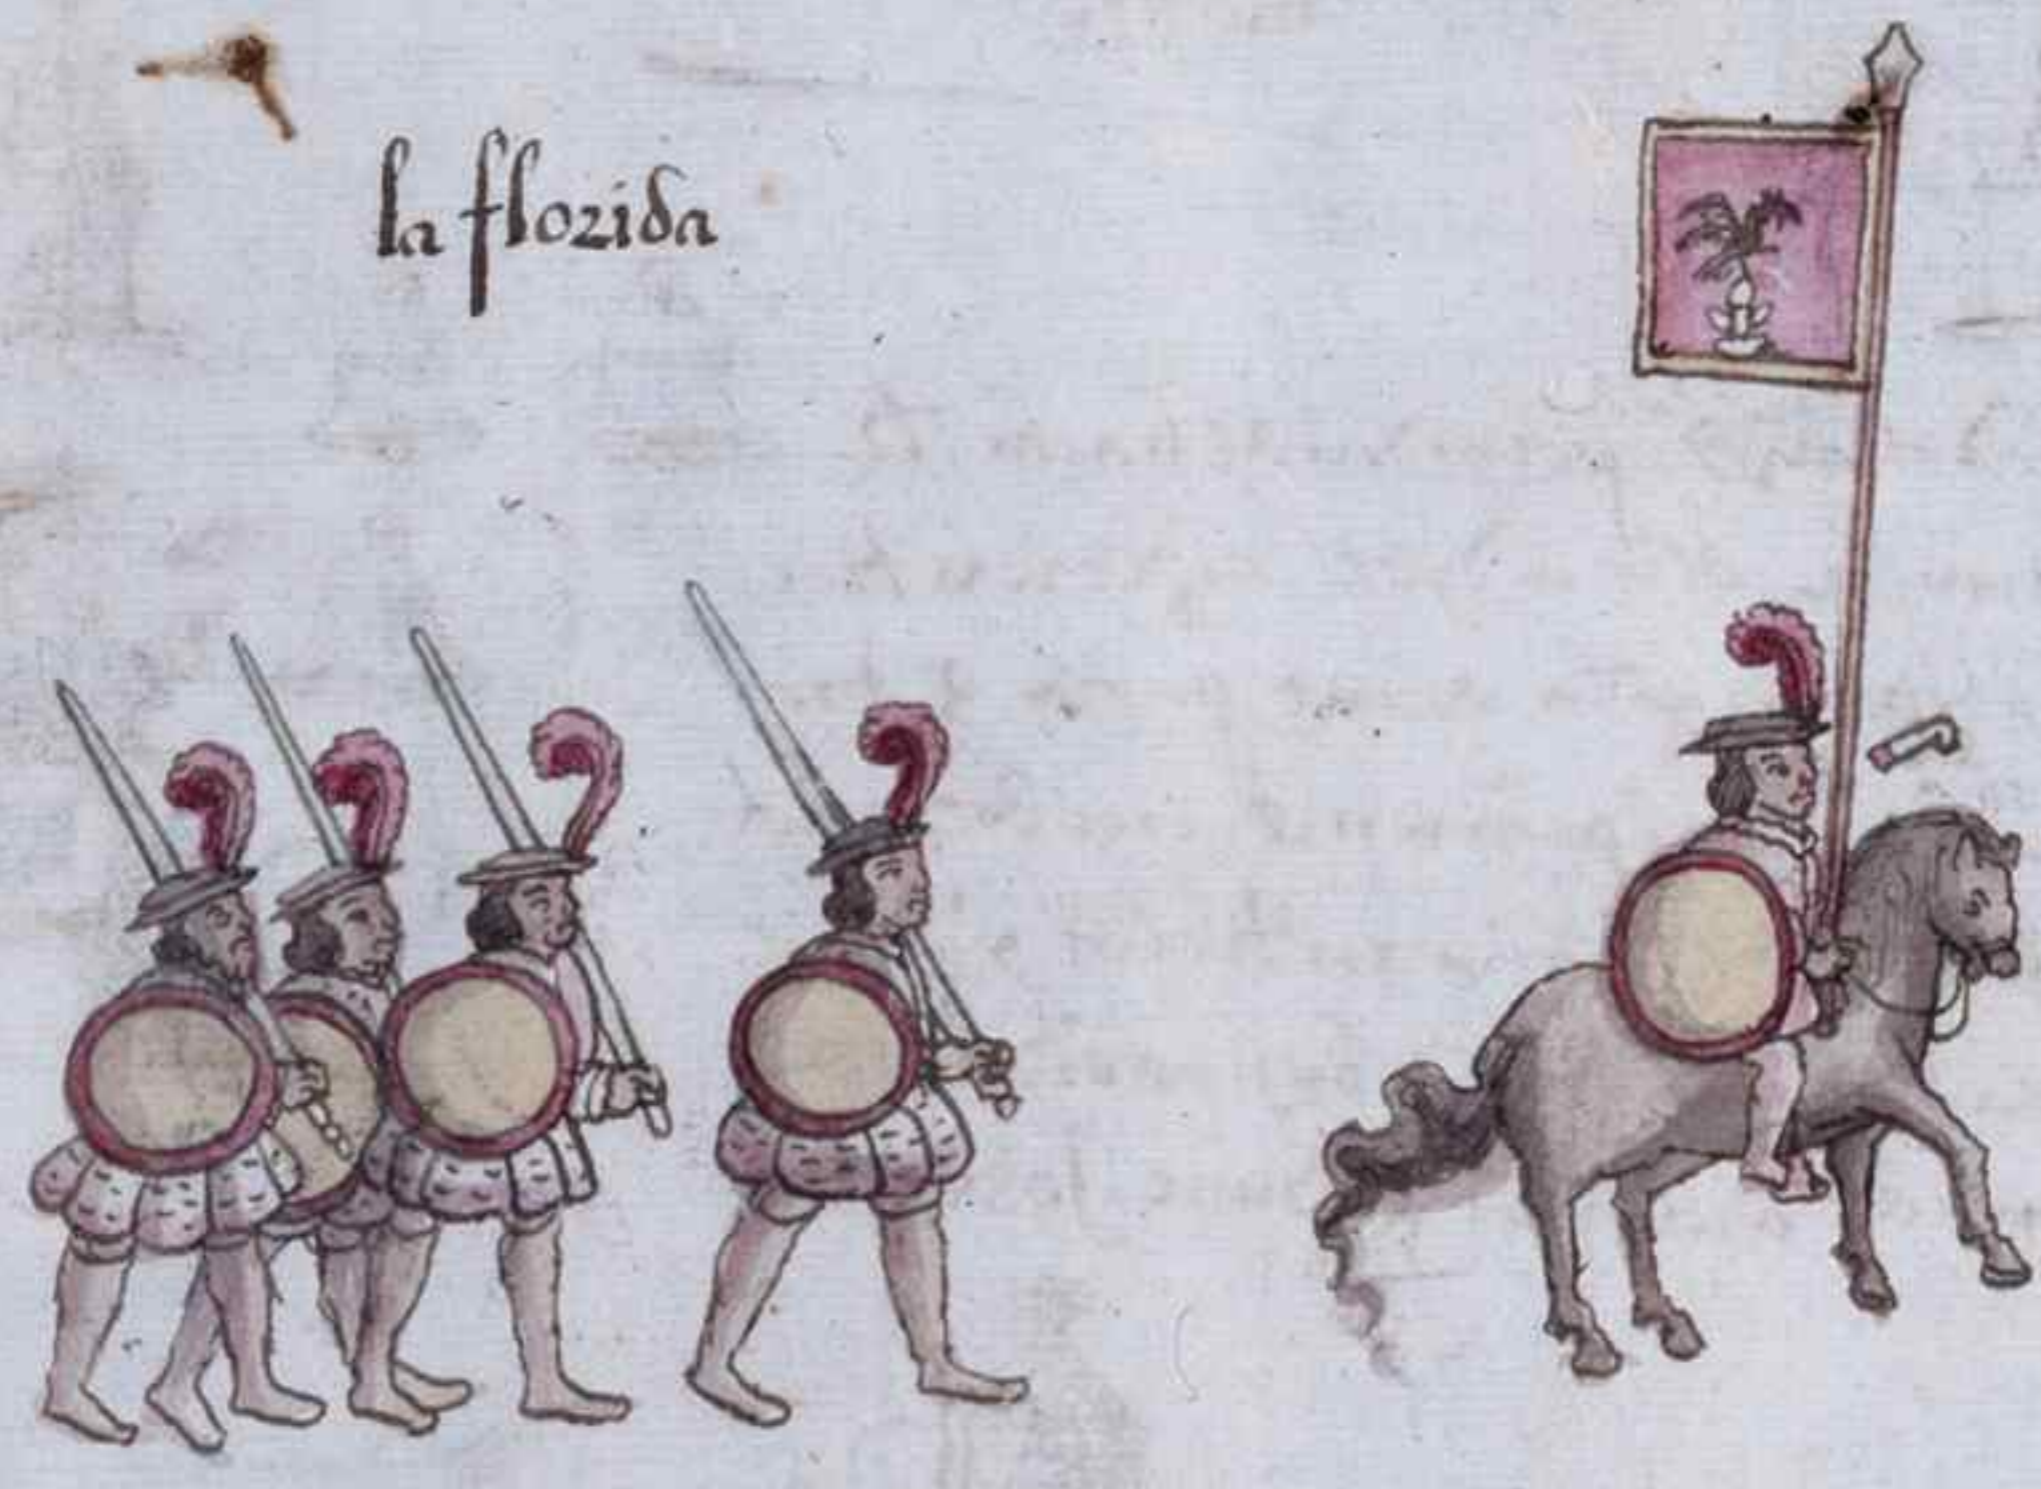 la florida